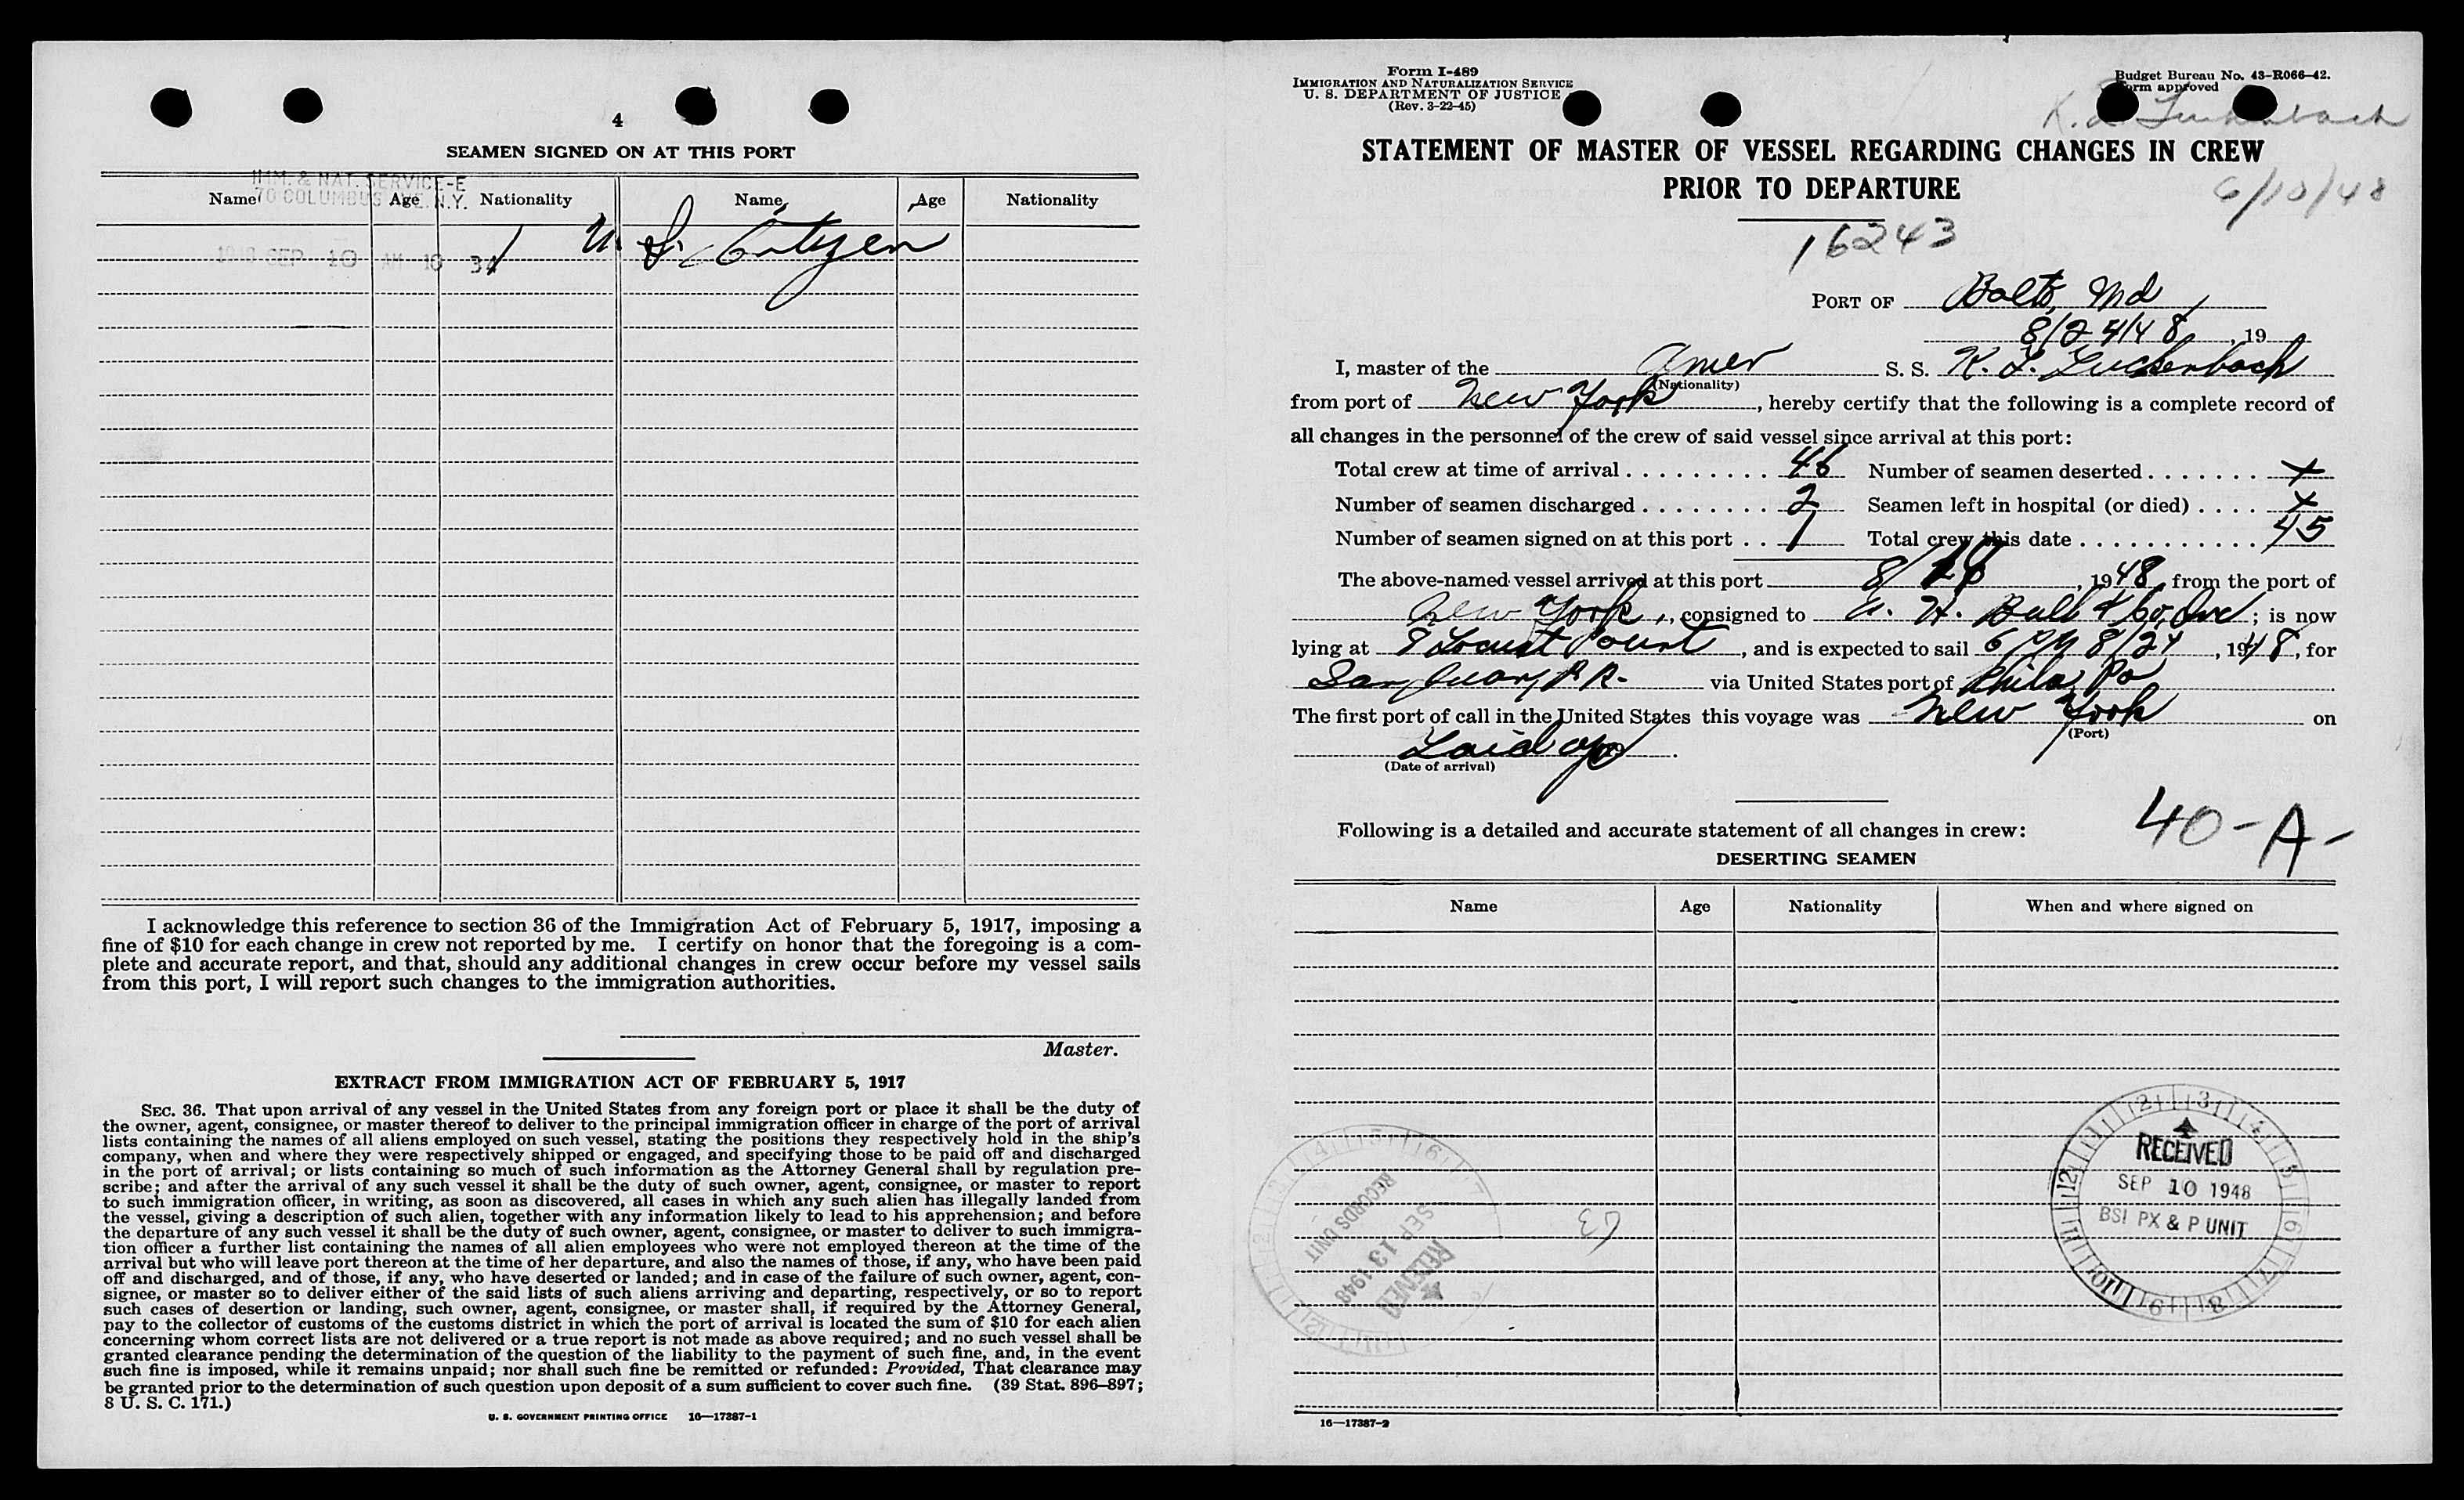 4
SEAMEN SIGNED ON AT THIS PORT
IMM. & NAT. SERVICE-E
70 COLUMBUS AVE. N.Y.
Name Age Nationality Name Age Nationality
1948 SEP 10 AM 10 34
1 U. S. Citizen
I acknowledge this reference to section 36 of the Immigration Act of February 5, 1917, imposing a
fine of $10 for each change in crew not reported by me. I certify on honor that the foregoing is a com-
plete and accurate report, and that, should any additional changes in crew occur before my vessel sails
from this port, I will report such changes to the immigration authorities.
Master.
EXTRACT FROM IMMIGRATION ACT OF FEBRUARY 5, 1917
SEC. 36. That upon arrival of any vessel in the United States from any foreign port or place it shall be the duty of
the owner, agent, consignee, or master thereof to deliver to the principal immigration officer in charge of the port of arrival
lists containing the names of all aliens employed on such vessel, stating the positions they respectively hold in the ship's
company, when and where they were respectively shipped or engaged, and specifying those to be paid off and discharged
in the port of arrival; or lists containing so much of such information as the Attorney General shall by regulation pre-
scribe; and after the arrival of any such vessel it shall be the duty of such owner, agent, consignee, or master to report
to such immigration officer, in writing, as soon as discovered, all cases in which any such alien has illegally landed from
the vessel, giving a description of such alien, together with any information likely to lead to his apprehension; and before
the departure of any such vessel it shall be the duty of such owner, agent, consignee, or master to deliver to such immigra-
tion officer a further list containing the names of all alien employees who were not employed thereon at the time of the
arrival but who will leave port thereon at the time of her departure, and also the names of those, if any, who have been paid
off and discharged, and of those, if any, who have deserted or landed; and in case of the failure of such owner, agent, con-
signee, or master so to deliver either of the said lists of such aliens arriving and departing, respectively, or so to report
such cases of desertion or landing, such owner, agent, consignee, or master shall, if required by the Attorney General,
pay to the collector of customs of the customs district in which the port of arrival is located the sum of $10 for each alien
concerning whom correct lists are not delivered or a true report is not made as above required; and no such vessel shall be
granted clearance pending the determination of the question of the liability to the payment of such fine, and, in the event
such fine is imposed, while it remains unpaid; nor shall such fine be remitted or refunded: Provided, That clearance may
be granted prior to the determination of such question upon deposit of a sum sufficient to cover such fine. (39 Stat. 896–897;
8 U. S. C. 171.)
U. S. GOVERNMENT PRINTING OFFICE 16—17387-1
Form I-489
IMMIGRATION AND NATURALIZATION SERVICE
U. S. DEPARTMENT OF JUSTICE
(Rev. 3-22-45)
Budget Bureau No. 43-R066-42.
Form approved
K. L. Luckenbach
STATEMENT OF MASTER OF VESSEL REGARDING CHANGES IN CREW
PRIOR TO DEPARTURE
6/10/48
16243
PORT OF Balto, Md
8/24/48, 19
I, master of the Amer S. S. K. L. Luckenbach
(Nationality)
from port of New York, hereby certify that the following is a complete record of
all changes in the personnel of the crew of said vessel since arrival at this port:
Total crew at time of arrival 46 Number of seamen deserted x
Number of seamen discharged 2 Seamen left in hospital (or died) x
Number of seamen signed on at this port 1 Total crew this date 45
The above-named vessel arrived at this port 8/ , 1948, from the port of
New York, consigned to A. H. Bull & Co, Inc; is now
lying at 8 Locust Point, and is expected to sail 6 PM 8/24, 1948, for
San Juan, P R. via United States port of Phila, Pa
The first port of call in the United States this voyage was New York on
(Port)
Laid up 19 .
(Date of arrival)
40-A-
Following is a detailed and accurate statement of all changes in crew:
DESERTING SEAMEN
Name Age Nationality When and where signed on
RECEIVED
SEP 10 1948
BSI PX & P UNIT
RECEIVED
SEP 13 1948
RECORDS UNIT
16—17387-2